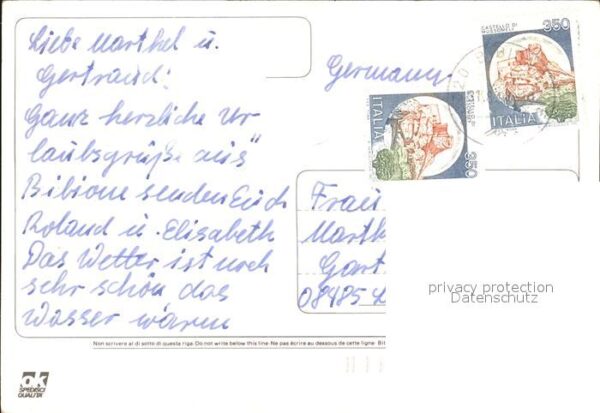 Liebe Marthel u.
Gertraud!
Ganz herzliche Ur-
laubsgrüße aus
Bibione senden Euch
Roland u. Elisabeth
Das Wetter ist noch
sehr schön, das
Wasser wärm
Germany
CASTELLO DI
350
ITALIA
350
ITALIA
Frau
Marth
Gart
08485
privacy protection
Datenschutz
Non scrivere al di sotto di questa riga. Do not write below this line-Ne pas écrire au dessous de cette ligne- Bit
ok
SPEDISCI
QUALITÀ